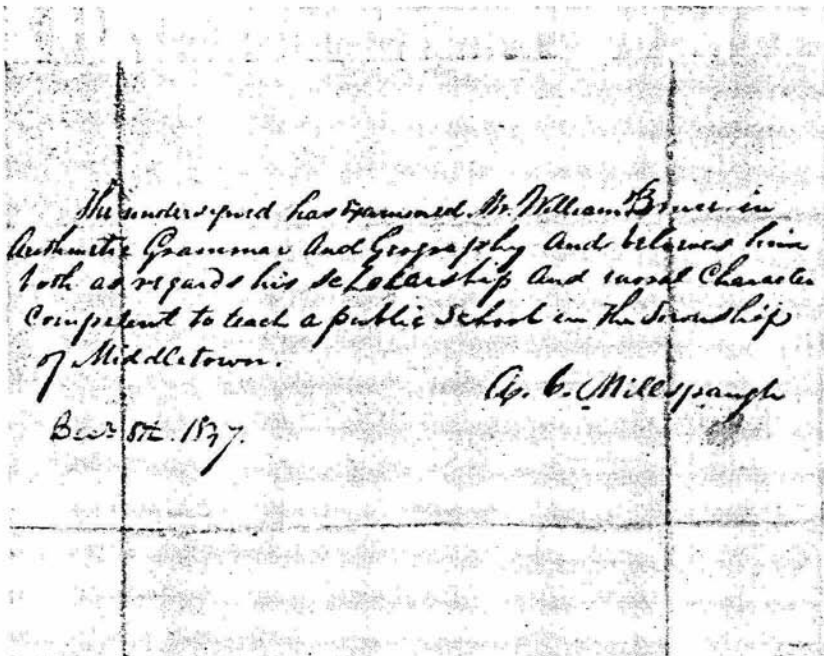 The undersigned has Examined Mr. William Bruce in
Arithmetic Grammar And Geography And believes him
both as regards his scholarship And moral Character
Competent to teach a public School in The Township
of Middletown.
C. Millspaugh
Decr 8th. 1837.